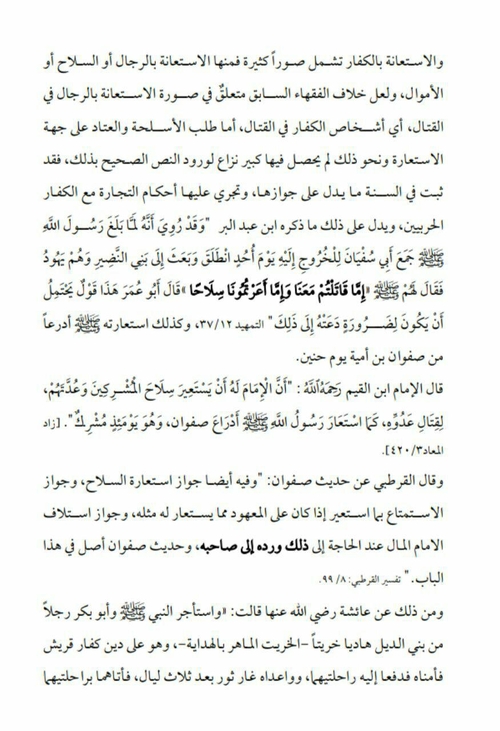 والاستعانة بالكفار تشمل صوراً كثيرة فمنها الاستعانة بالرجال أو السلاح أو
الأموال، ولعل خلاف الفقهاء السابق متعلقٌ في صورة الاستعانة بالرجال في
القتال، أي أشخاص الكفار في القتال، أما طلب الأسلحة والعتاد على جهة
الاستعارة ونحو ذلك لم يحصل فيها كبير نزاع لورود النص الصحيح بذلك، فقد
ثبت في السنة ما يدل على جوازها، وتجري عليها أحكام التجارة مع الكفار
الحربيين، ويدل على ذلك ما ذكره ابن عبد البر "وَقَدْ رُوِيَ أَنَّهُ لَمَّا بَلَغَ رَسُولَ اللَّهِ
ﷺ جَمَعَ أَبِي سُفْيَانَ لِلْخُرُوجِ إِلَيْهِ يَوْمَ أُحُدٍ انْطَلَقَ وَبَعَثَ إِلَى بَنِي النَّضِيرِ وَهُمْ يَهُودُ
فَقَالَ لَهُمْ ﷺ «إِمَّا قَاتَلْتُمْ مَعَنَا وَإِمَّا أَعَرْتُمُونَا سِلَاحًا» قَالَ أَبُو عُمَرَ هَذَا قَوْلٌ يَحْتَمِلُ
أَنْ يَكُونَ لِضَرُورَةٍ دَعَتْهُ إِلَى ذَلِكَ" التمهيد ٣٧/١٢، وكذلك استعارته ﷺ أدرعاً
من صفوان بن أمية يوم حنين.
قال الإمام ابن القيم رَحِمَهُ اللَّهُ: "أَنَّ الْإِمَامَ لَهُ أَنْ يَسْتَعِيرَ سِلَاحَ الْمُشْرِكِينَ وَعُدَّتَهُمْ،
لِقِتَالِ عَدُوِّهِ، كَمَا اسْتَعَارَ رَسُولُ اللَّهِ ﷺ أَدْرَاعَ صفوان، وَهُوَ يَوْمَئِذٍ مُشْرِكٌ". [زاد
المعاد٤٢٠/٣].
وقال القرطبي عن حديث صفوان: "وفيه أيضا جواز استعارة السلاح، وجواز
الاستمتاع بما استعير إذا كان على المعهود مما يستعار له مثله، وجواز استلاف
الامام المال عند الحاجة إلى ذلك ورده إلى صاحبه، وحديث صفوان أصل في هذا
الباب." تفسير القرطبي: ٨/ ٩٩.
ومن ذلك عن عائشة رضي الله عنها قالت: «واستأجر النبي ﷺ وأبو بكر رجلاً
من بني الديل هاديا خريتاً –الخريت الماهر بالهداية–، وهو على دين كفار قريش
فأمناه فدفعا إليه راحلتيهما، وواعداه غار ثور بعد ثلاث ليال، فأتاهما براحلتيهما